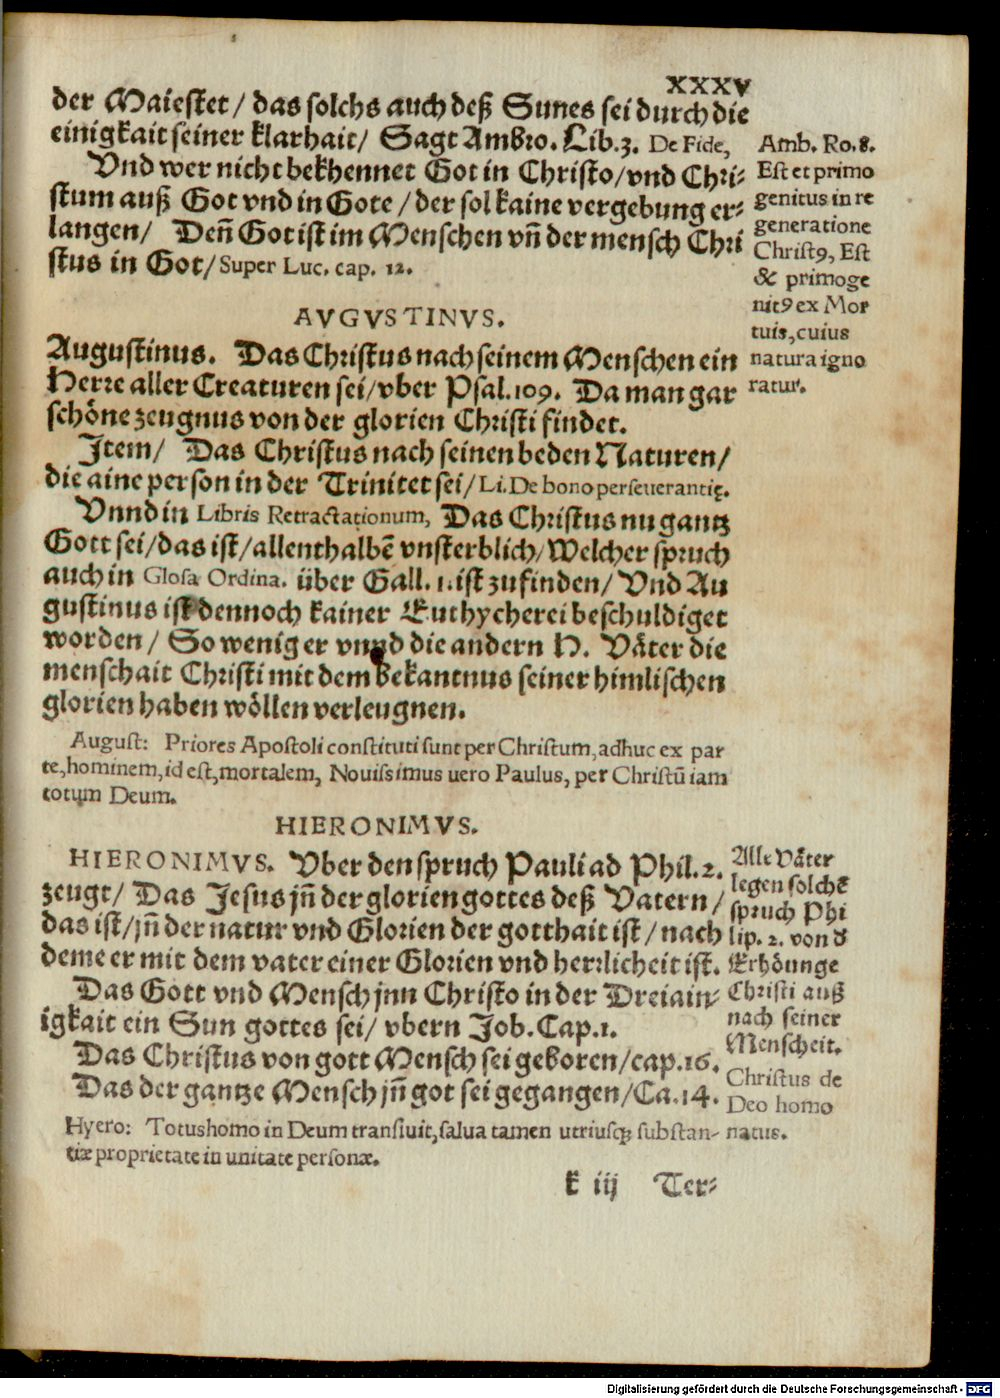 XXXV
der Maiestet / das solchs auch deß Sunes sei durch die
einigkait seiner klarhait / Sagt Ambro. Lib. 3. De Fide,
Vnd wer nicht bekhennet Got in Christo / vnd Chri-
stum auß Got vnd in Gote / der sol kaine vergebung er-
langen / Deñ Got ist im Menschen vñ der mensch Chri
stus in Got / Super Luc. cap. 12.
Amb. Ro. 8.
Est et primo
genitus in re
generatione
Christ9, Est
& primoge
nit9 ex Mor
tuis, cuius
natura igno
ratur.
AVGVSTINVS.
Augustinus. Das Christus nach seinem Menschen ein
Herre aller Creaturen sei / vber Psal. 109. Da man gar
schöne zeugnus von der glorien Christi findet.
Item / Das Christus nach seinen beden Naturen /
die aine person in der Trinitet sei / Li. De bono perseuerantię.
Vnnd in Libris Retractationum, Das Christus nu gantz
Gott sei / das ist / allenthalbẽ vnsterblich / Welcher spruch
auch in Glosa Ordina. über Gall. 1. ist zufinden / Vnd Au
gustinus ist dennoch kainer Euthycherei beschuldiget
worden / So wenig er vnnd die andern H. Väter die
menschait Christi mit dem bekantnus seiner himlischen
glorien haben wöllen verleugnen.
August: Priores Apostoli constituti sunt per Christum, adhuc ex par
te, hominem, id est, mortalem, Nouissimus uero Paulus, per Christũ iam
totum Deum.
HIERONIMVS.
HIERONIMVS. Vber den spruch Pauli ad Phil. 2.
zeugt / Das Jesus jñ der glorien gottes deß Vatern /
das ist / jñ der natur vnd Glorien der gotthait ist / nach
deme er mit dem vater einer Glorien vnd herrlicheit ist.
Das Gott vnd Mensch jnn Christo in der Dreiain-
igkait ein Sun gottes sei / vbern Job. Cap. 1.
Das Christus von gott Mensch sei geboren / cap. 16.
Das der gantze Mensch jñ got sei gegangen / Ca. 14.
Alle Väter
legen solchẽ
spruch Phi
lip. 2. von d̕
Erhöunge
Christi auß
nach seiner
Menscheit.
Christus de
Deo homo
natus.
Hyero: Totus homo in Deum transiuit, salua tamen utriusqꝫ substan-
tiæ proprietate in unitate personæ.
k iij Ter-
Digitalisierung gefördert durch die Deutsche Forschungsgemeinschaft - DFG